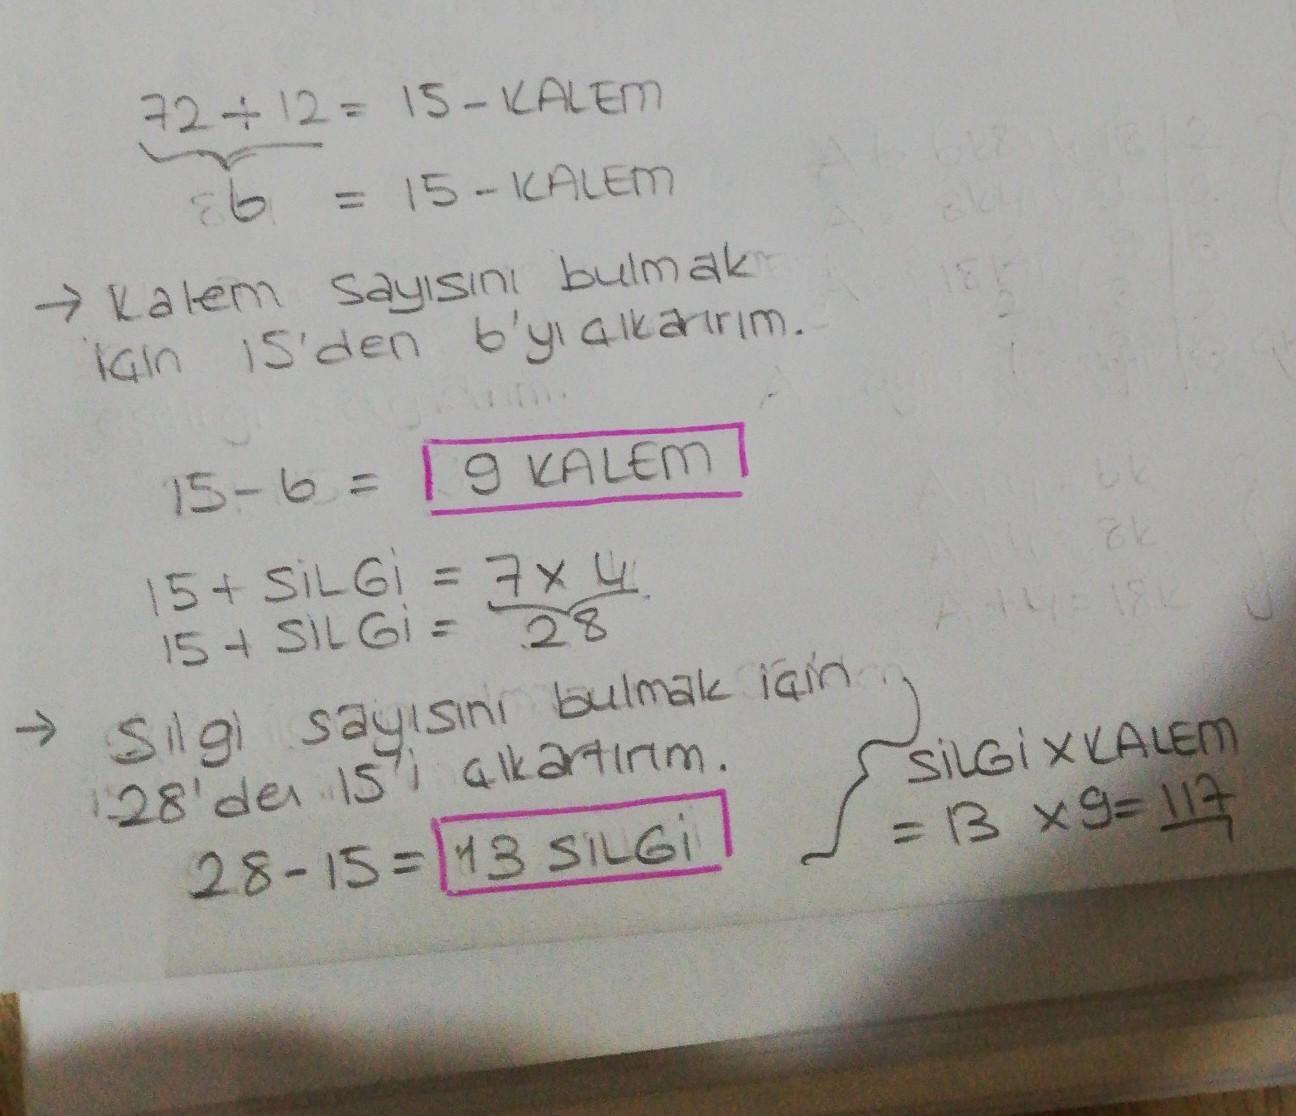 72÷12= 15-KALEM
6 = 15-KALEM
→ Kalem sayısını bulmak
için 15'den 6'yı çıkarırım.
15-6 = 9 KALEM
15+ SİLGİ = 7x4
15+ SİLGİ = 28
→ Silgi sayısını bulmak için
28'den 15'i çıkartırım.
28-15= 13 SİLGİ
SİLGİ X KALEM
= 13 x9= 117